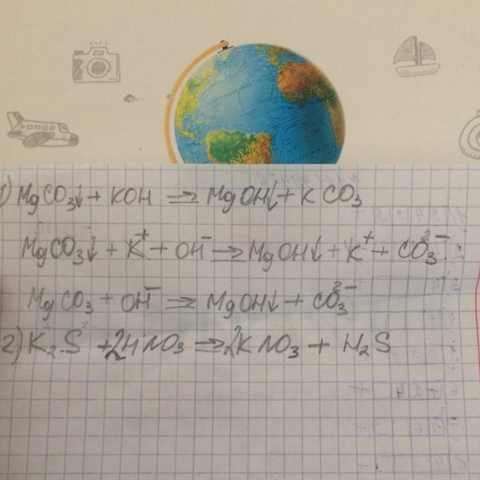 1) MgCO₃↓ + KOH ⇒ MgOH↓ + KCO₃
MgCO₃↓ + K⁺ + OH⁻ → MgOH↓ + K⁺ + CO₃²⁻
MgCO₃ + OH⁻ ⇒ MgOH↓ + CO₃²⁻
2) K₂S + 2HNO₃ ⇒ 2KNO₃ + H₂S